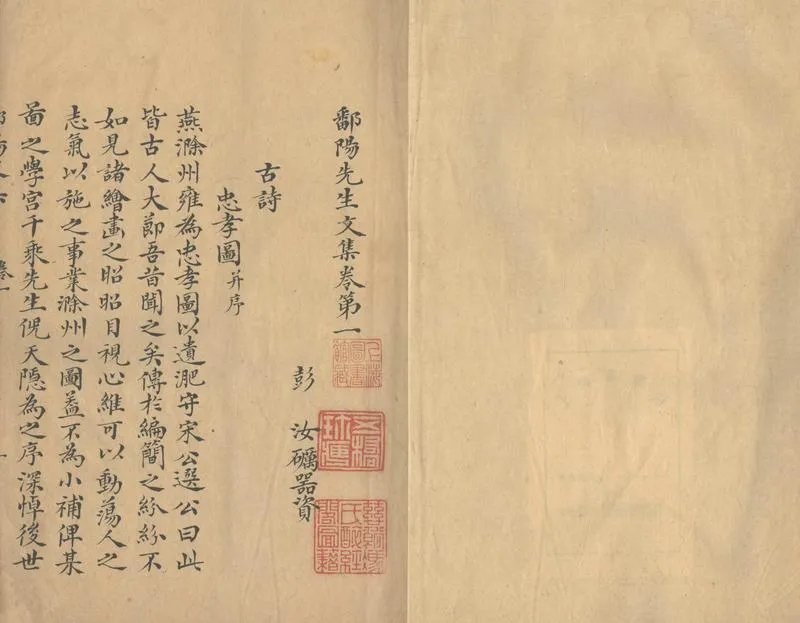 鄱陽先生文集卷第一
彭 汝礪器資
古詩
忠孝圖并序
燕滁州雍為忠孝圖以遺淝守宋公選公曰此
皆古人大節吾昔聞之矣傳於編簡之紛紛不
如見諸繪畫之昭昭目視心維可以動蕩人之
志氣以施之事業滁州之圖蓋不為小補俾某
啚之學宮千乘先生倪天隱為之序深悼後世